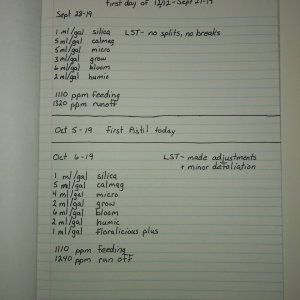 first day of 12/12 - Sept 21-19
Sept 28-19
1 ml/gal silica LST - no splits, no breaks
5 ml/gal calmag
5 ml/gal micro
3 ml/gal grow
6 ml/gal bloom
2 ml/gal humic
1110 ppm feeding
1320 ppm runoff
Oct 5-19 first Pistil today
Oct 6-19 LST - made adjustments
+ minor defoliation
1 ml/gal silica
5 ml/gal calmag
4 ml/gal micro
2 ml/gal grow
6 ml/gal bloom
2 ml/gal humic
1 ml/gal floralicious plus
1110 ppm feeding
1240 ppm run off